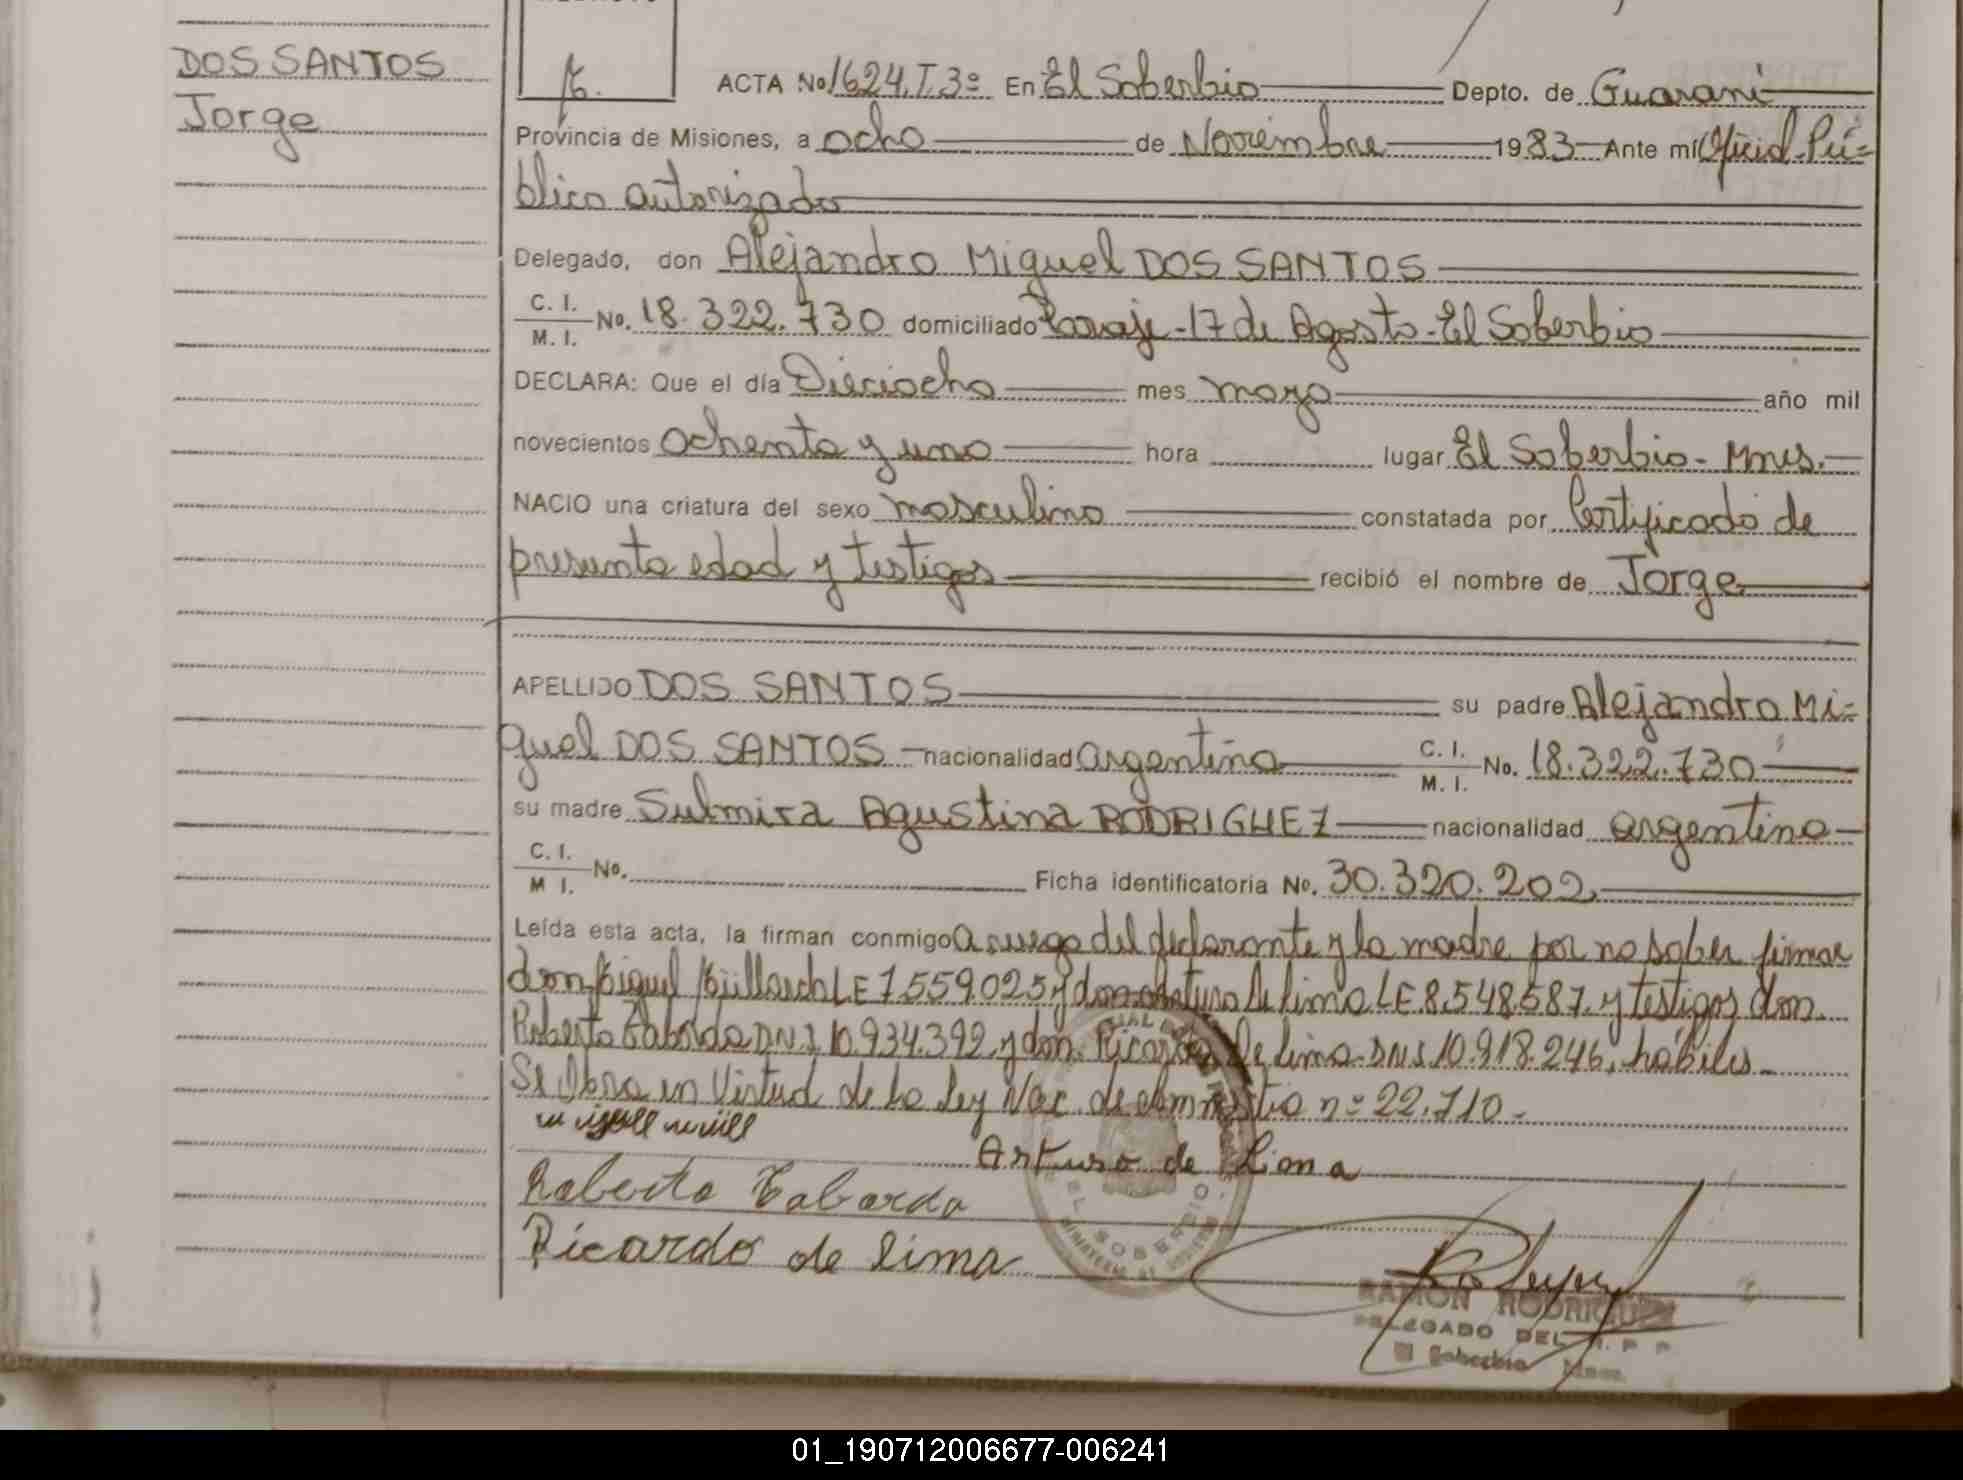 DOS SANTOS
Jorge
ACTA No 1624.T.3º En El Soberbio Depto. de Guaraní
Provincia de Misiones, a ocho de Noviembre 1983 Ante mí Oficial Pú=
blico autorizado
Delegado, don Alejandro Miguel DOS SANTOS
C. I.
M. I. No. 18.322.730 domiciliado Paraje-17 de Agosto-El Soberbio
DECLARA: Que el día Dieciocho mes marzo año mil
novecientos ochenta y uno hora lugar El Soberbio- Mnes.
NACIO una criatura del sexo masculino constatada por Certificado de
presunta edad y testigos recibió el nombre de Jorge
APELLIDO DOS SANTOS su padre Alejandro Mi=
guel DOS SANTOS nacionalidad argentina C. I.
M. I. No. 18.322.730
su madre Sulmira Agustina RODRIGUEZ nacionalidad argentina
C. I.
M I. No. Ficha identificatoria No. 30.320.202
Leída esta acta, la firman conmigo a ruego del declarante y la madre por no saber firmar
don Miguel LE 7.559.025 y don Arturo de Lima LE 8.548.587. y testigos don
Roberto Taborda D.N.I 10.934.392. y don Ricardo de Lima. DNI. 10.918.246, hábiles
Se Labra en Virtud de la Ley Nac. de Amnistia nº 22.710.-
Arturo de Lima
Roberto Taborda
Ricardo de lima
EL SOBERBIO
RAMON RODRIGUEZ
DELEGADO DEL R. P. P
El Soberbio Mnes.
01_190712006677-006241